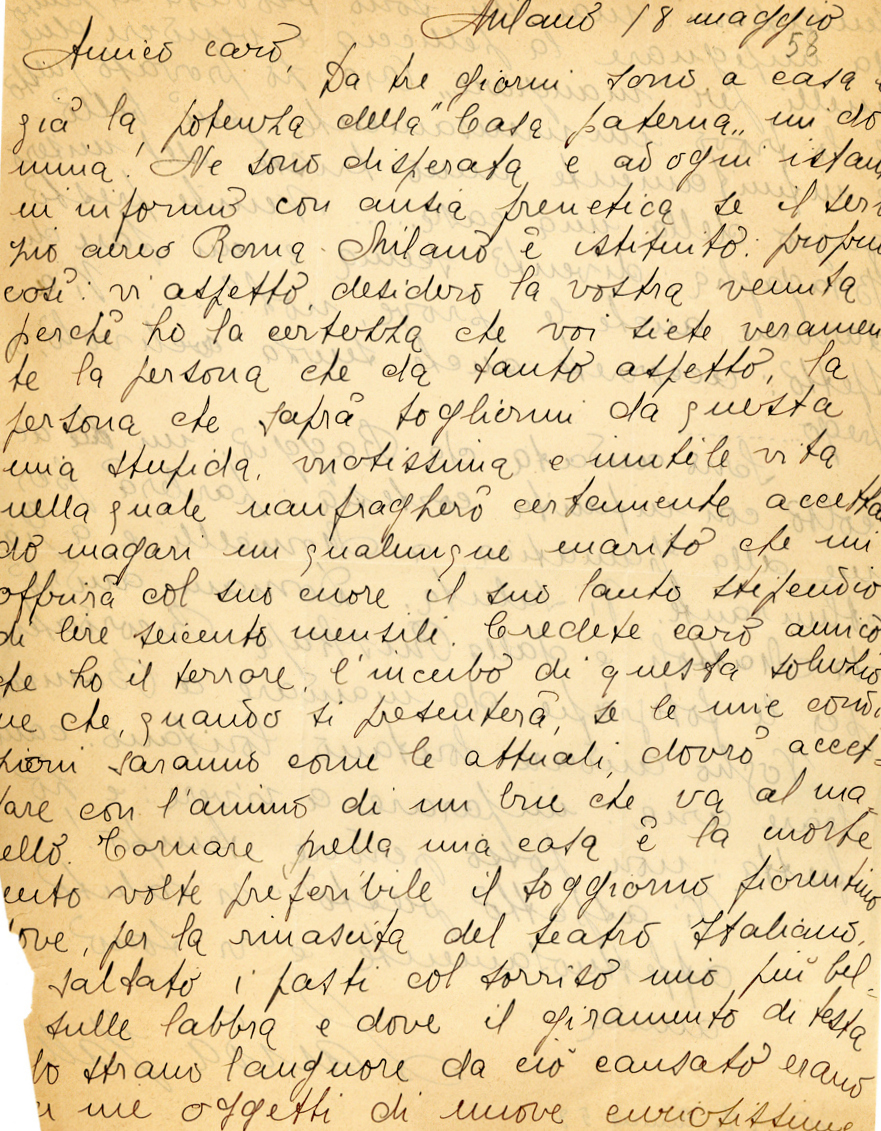 Milano 18 maggio
53
Amico caro,
Da tre giorni sono a casa e
già la potenza della "Casa paterna" mi do
mina! Ne sono disperata e ad ogni istan
mi informo con ansia frenetica se il ser
zio aereo Roma-Milano è istituito: propri
così: vi aspetto, desidero la vostra venuta
perchè ho la certezza che voi siete veramen
te la persona che da tanto aspetto, la
persona che saprà togliermi da questa
mia stupida, vuotissima e inutile vita
nella quale naufragherò certamente accetta
do magari un qualunque marito che mi
offrirà col suo cuore il suo lauto stipendio
di lire seicento mensili. Credete caro amico
che ho il terrore, l'incubo di questa soluzio
ne che, quando si presenterà, se le mie condi
zioni saranno come le attuali, dovrò accet-
tare con l'animo di un bue che va al ma-
ello. Tornare nella mia casa è la morte
ento volte preferibile il soggiorno fiorentino
dove, per la rinascita del teatro Italiano,
saltato i pasti col sorriso mio più bel-
sulle labbra e dove il giramento di testa
lo strano languore da ciò causato erano
me oggetti di nuove curiosissime